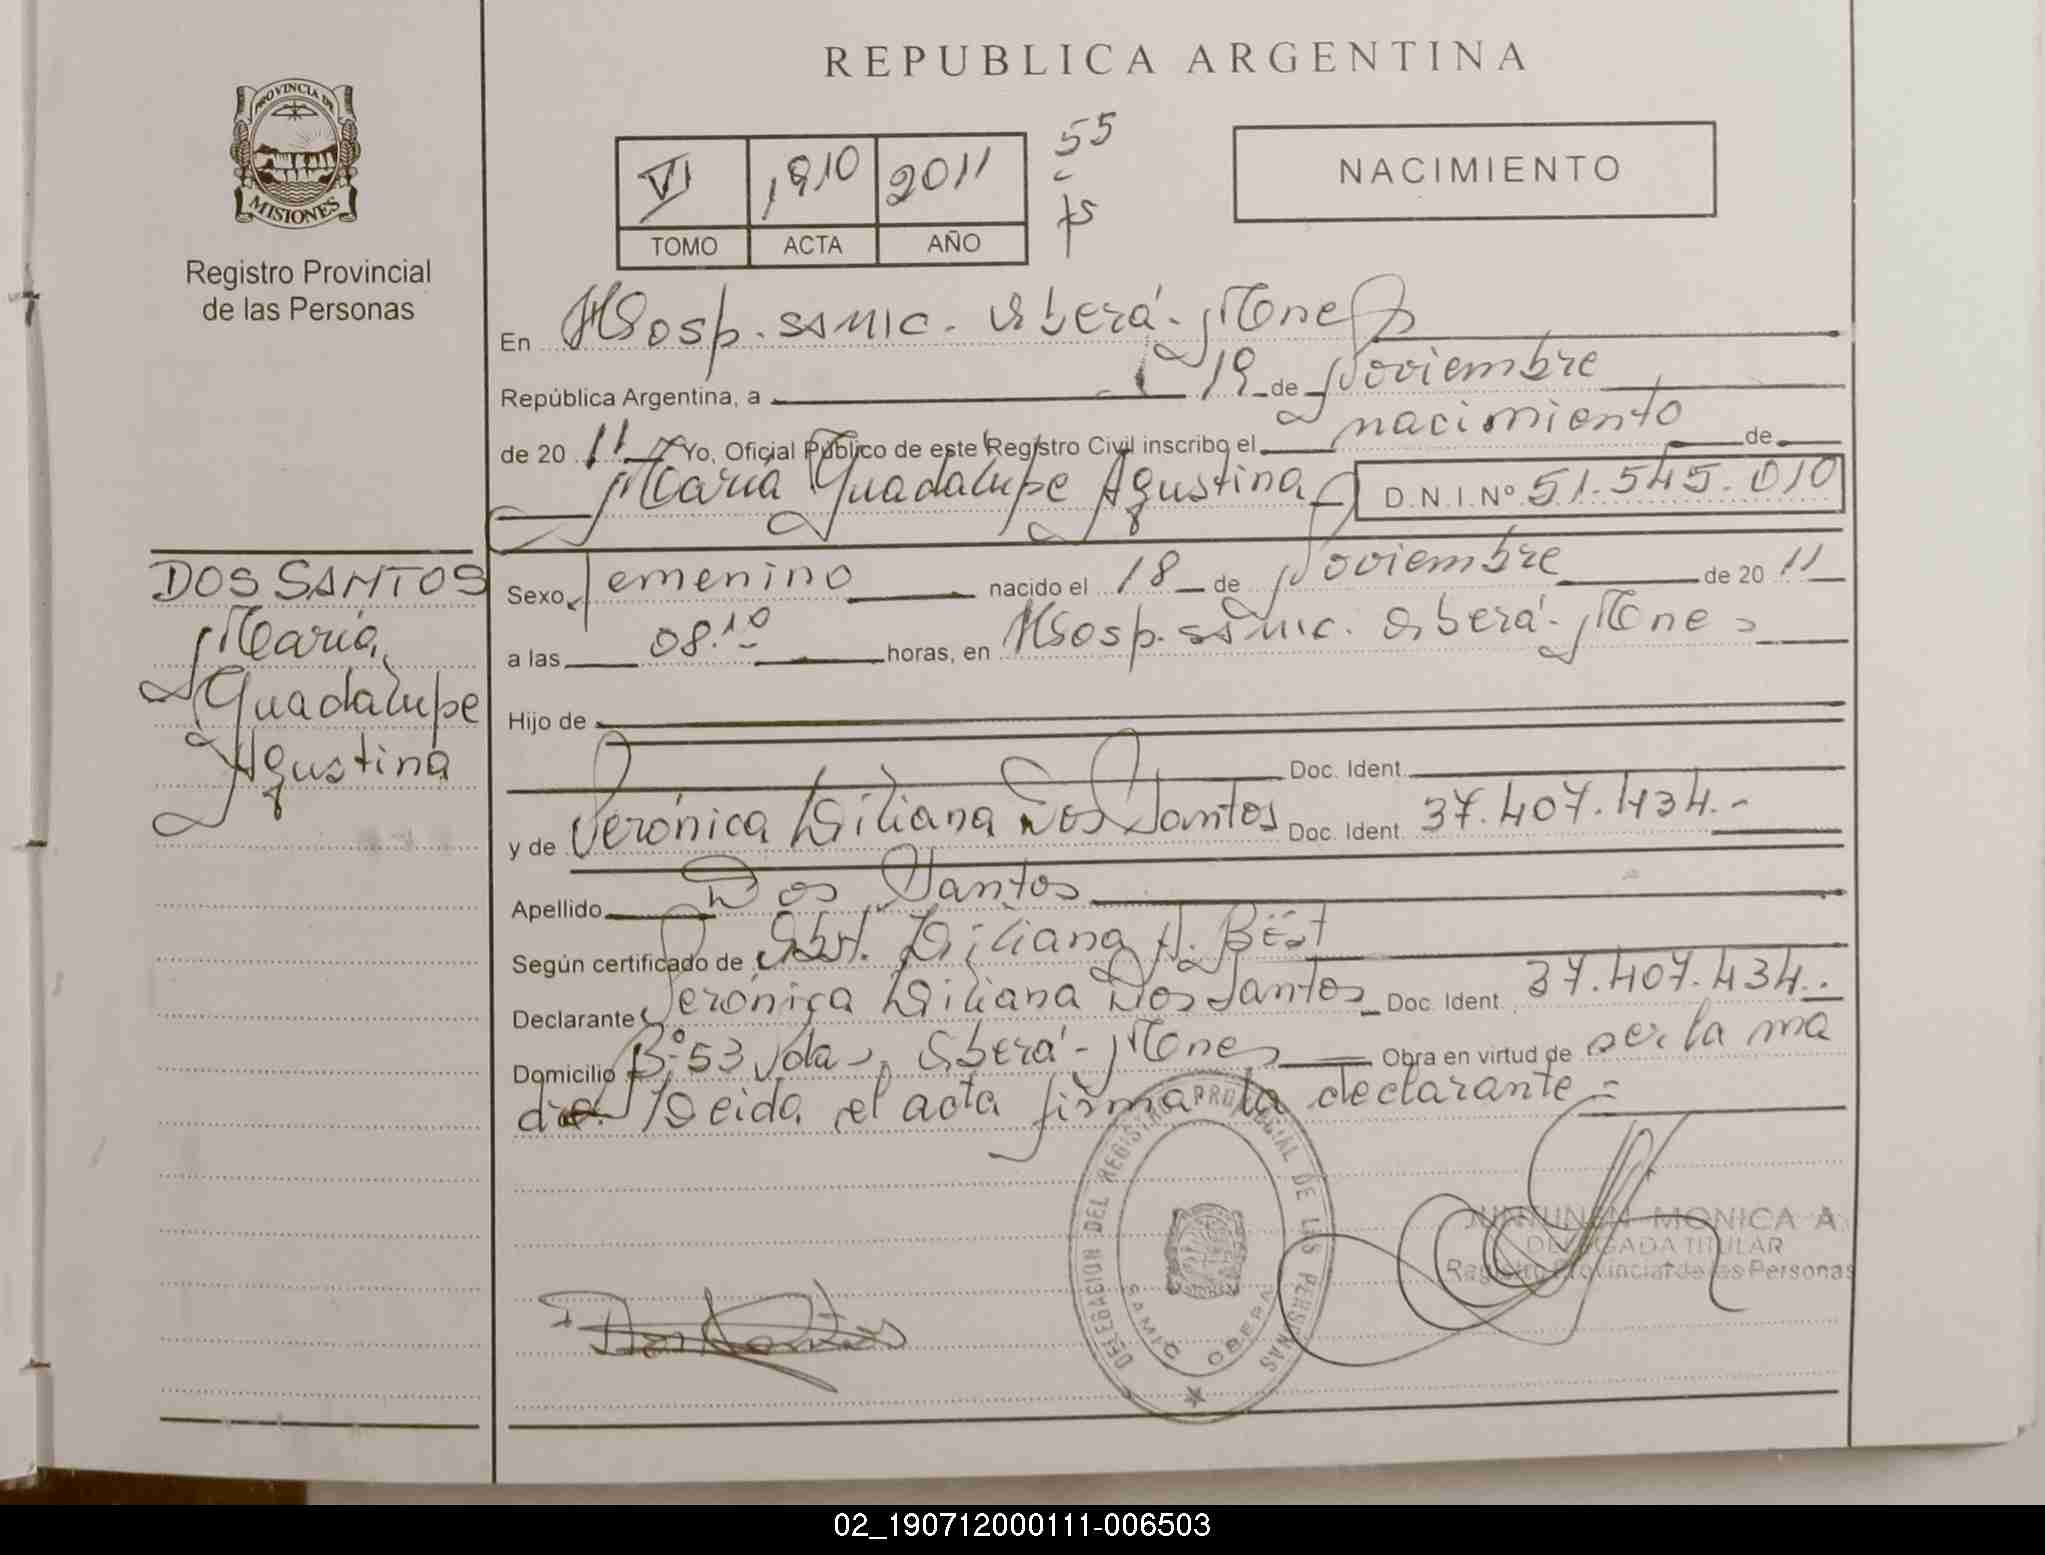 REPUBLICA ARGENTINA
PROVINCIA DE
MISIONES
Registro Provincial
de las Personas
VI 1910 2011
TOMO ACTA AÑO
55
NACIMIENTO
En Hosp. SAMIC. Oberá - Mnes
República Argentina, a 19 de Noviembre
de 2011 Yo, Oficial Público de este Registro Civil inscribo el nacimiento de
María Guadalupe Agustina D.N.I. Nº 51.545.010
DOS SANTOS
María
Guadalupe
Agustina
Sexo femenino nacido el 18 de Noviembre de 2011
a las 08.10 horas, en Hosp. SAMIC. Oberá - Mnes
Hijo de
Doc. Ident.
y de Verónica Liliana Dos Santos Doc. Ident. 37.407.434.-
Apellido Dos Santos
Según certificado de Obst. Liliana A. Bëst
Declarante Verónica Liliana Dos Santos Doc. Ident. 37.407.434.-
Domicilio Bº 53 Vdas, Oberá - Mnes Obra en virtud de ser la ma
dre. Leida el acta firma la declarante =
DELEGACION DEL REGISTRO PROVINCIAL DE LAS PERSONAS
SAMIC OBERA
MONICA A
DELEGADA TITULAR
Registro Provincial de las Personas
Dos Santos
02_190712000111-006503